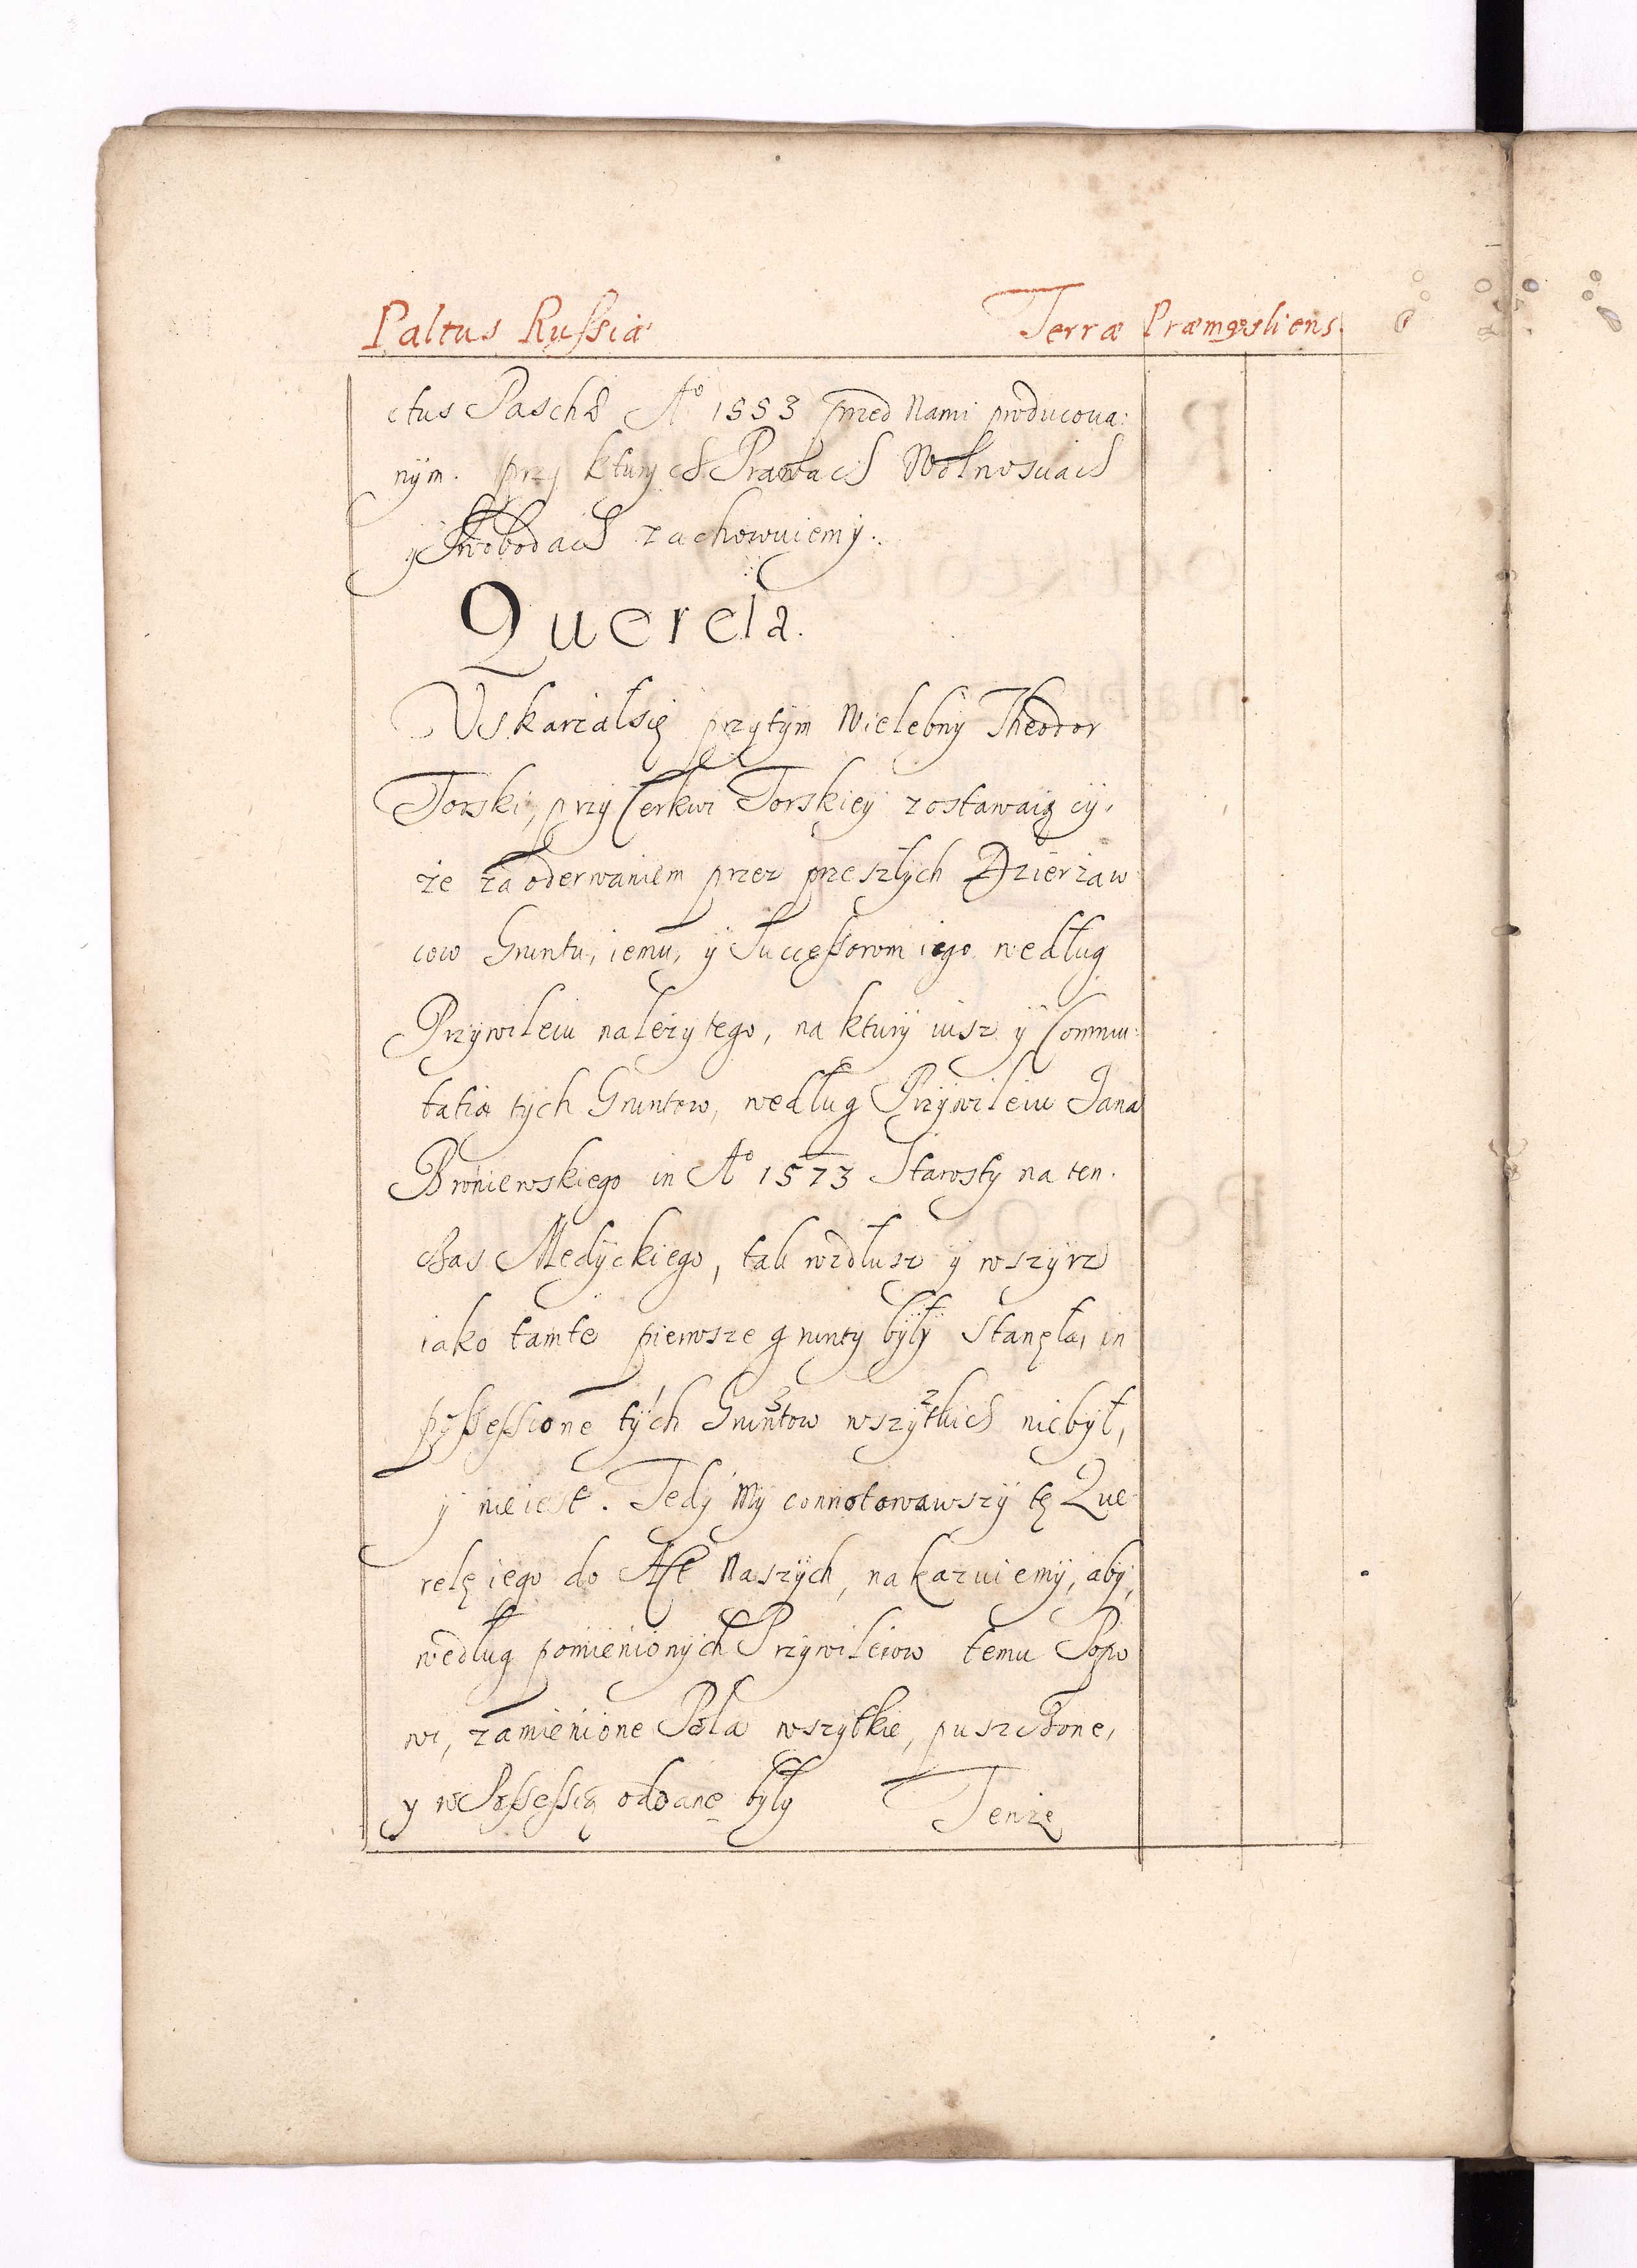 Paltus Russiæ Terræ Præmysliens.
ctus Paschæ Aº 1553 przed Nami producowa:
nym. przy kturych Prawach Wolnosciach
y Swobodach zachowuiemy.
Querela.
Vskarzałsię przytym Wielebny Theodor
Torski, przy Cerkwi Torskiey zostawaiący,
że za oderwaniem przez przeszłych Dzierżaw
cow Gruntu, iemu, y Successorom iego według
Przywileiu należytego, na ktury iusz y Commu:
tatia tych Gruntow, według Przywileiu Jana
Broniewskiego in Aº 1573 Starosty na ten.
czas Medyckiego, tak wzdłusz y wszyrz
iako tamte pierwsze grunty były stanęła, in
possessione tych Gruntow wszytkich niebył,
y nieiest. Tedy My connotowawszy tę Que
relę iego do Akt Naszych, nakazuiemy, aby,
według pomienionych Przywileiow temu Popo
wi, zamienione Pola wszytkie, puszczone,
y w Possessią oddane były Tenże